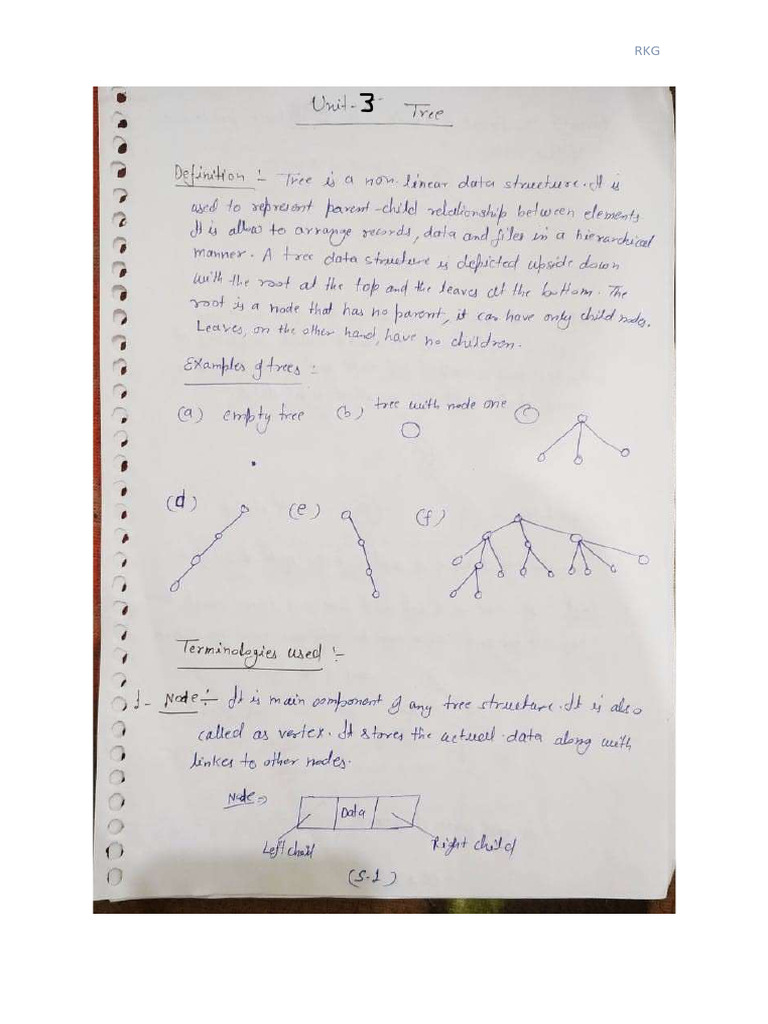 RKG
Unit-3 Tree
Definition :- Tree is a non-linear data structure. It is
used to represent parent-child relationship between elements
It is allow to arrange records, data and files in a hierarchical
manner. A tree data structure is depicted upside down
with the root at the top and the leaves at the bottom. The
root is a node that has no parent, it can have only child nodes.
Leaves, on the other hand, have no children.
Examples of trees :-
(a) empty tree (b) tree with node one (c)
(d) (e) (f)
Terminologies used :-
1- Node :- It is main component of any tree structure. It is also
called as vertex. It stores the actual data along with
linkes to other nodes.
Node =>
Data
Left chail Right child
(5.1)